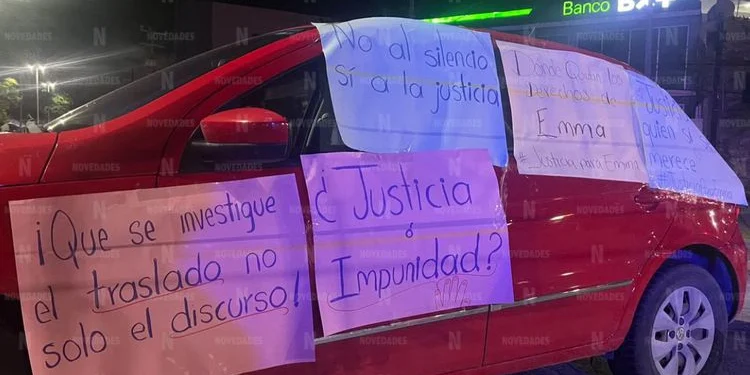 Banco
No al silencio
Sí a la justicia
¿Dónde Quedan los
derechos de
Emma
#JusticiaparaEmma
quien sí
merece
¡Que se investigue
el traslado, no
solo el discurso!
¿Justicia
ó
Impunidad?
NOVEDADES